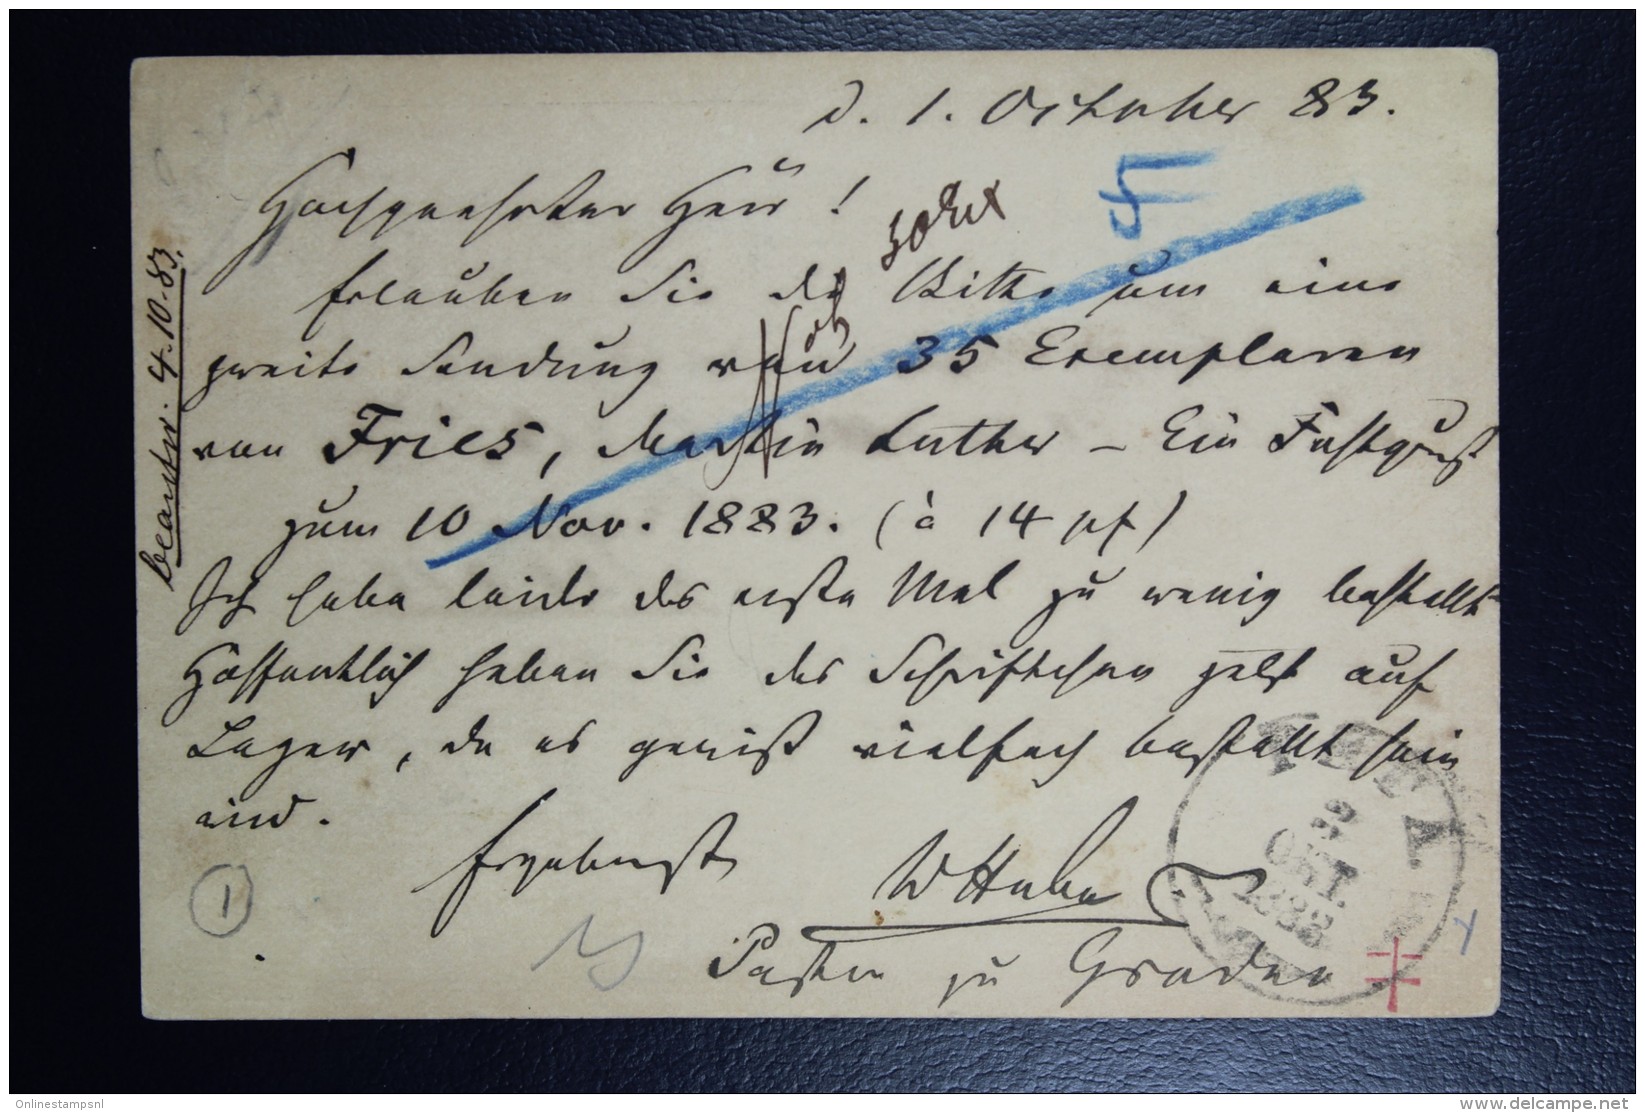 d. 1. October 83.
Hochgeehrter Herr!
Erlauben Sie die Bitte um eine
zweite Sendung von 35 Exemplaren
von Fries, Martin Luther – Ein Festgruß
zum 10 Nov. 1883. (à 14 pf)
Ich habe leider das erste Mal zu wenig bestellt
Hoffentlich haben Sie das Schriftchen selbst auf
Lager, da es gewiß vielfach bestellt sein
wird.
Ergebenst
Pastor zu
beantw. 4.10.83.
1
OKT.
Onlinestampsnl
www.delcampe.net